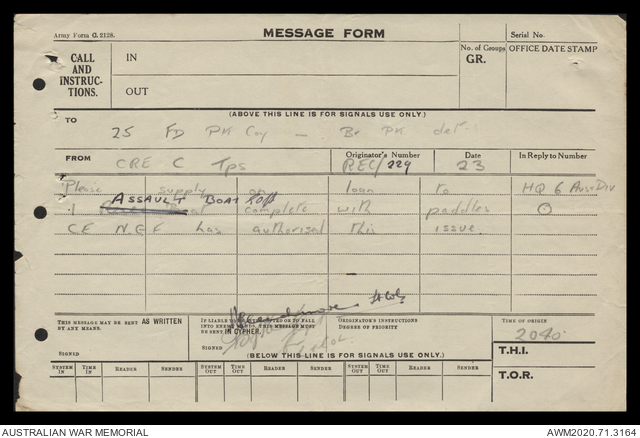 Army Form C. 2128.
MESSAGE FORM
Serial No.
CALL AND INSTRUC- TIONS.
IN
OUT
No. of Groups
GR.
OFFICE DATE STAMP
(ABOVE THIS LINE IS FOR SIGNALS USE ONLY.)
TO
25 FD PK Coy — Br PK det.
FROM
CRE C Tps
Originator's Number
REC/229
Date
23
In Reply to Number
Please supply on loan to HQ 6 Aust Div
1 ASSAULT BOAT complete with paddles
CE NGF has authorised this issue.
THIS MESSAGE MAY BE SENT AS WRITTEN BY ANY MEANS.
SIGNED
IF LIABLE TO BE INTERCEPTED OR TO FALL INTO ENEMY HANDS, THIS MESSAGE MUST BE SENT IN CYPHER.
SIGNED
ORIGINATOR'S INSTRUCTIONS
DEGREE OF PRIORITY
TIME OF ORIGIN
2040
T.H.I.
T.O.R.
(BELOW THIS LINE IS FOR SIGNALS USE ONLY.)
SYSTEM IN TIME IN READER SENDER SYSTEM OUT TIME OUT READER SENDER SYSTEM OUT TIME OUT READER SENDER
AUSTRALIAN WAR MEMORIAL
AWM2020.71.3164